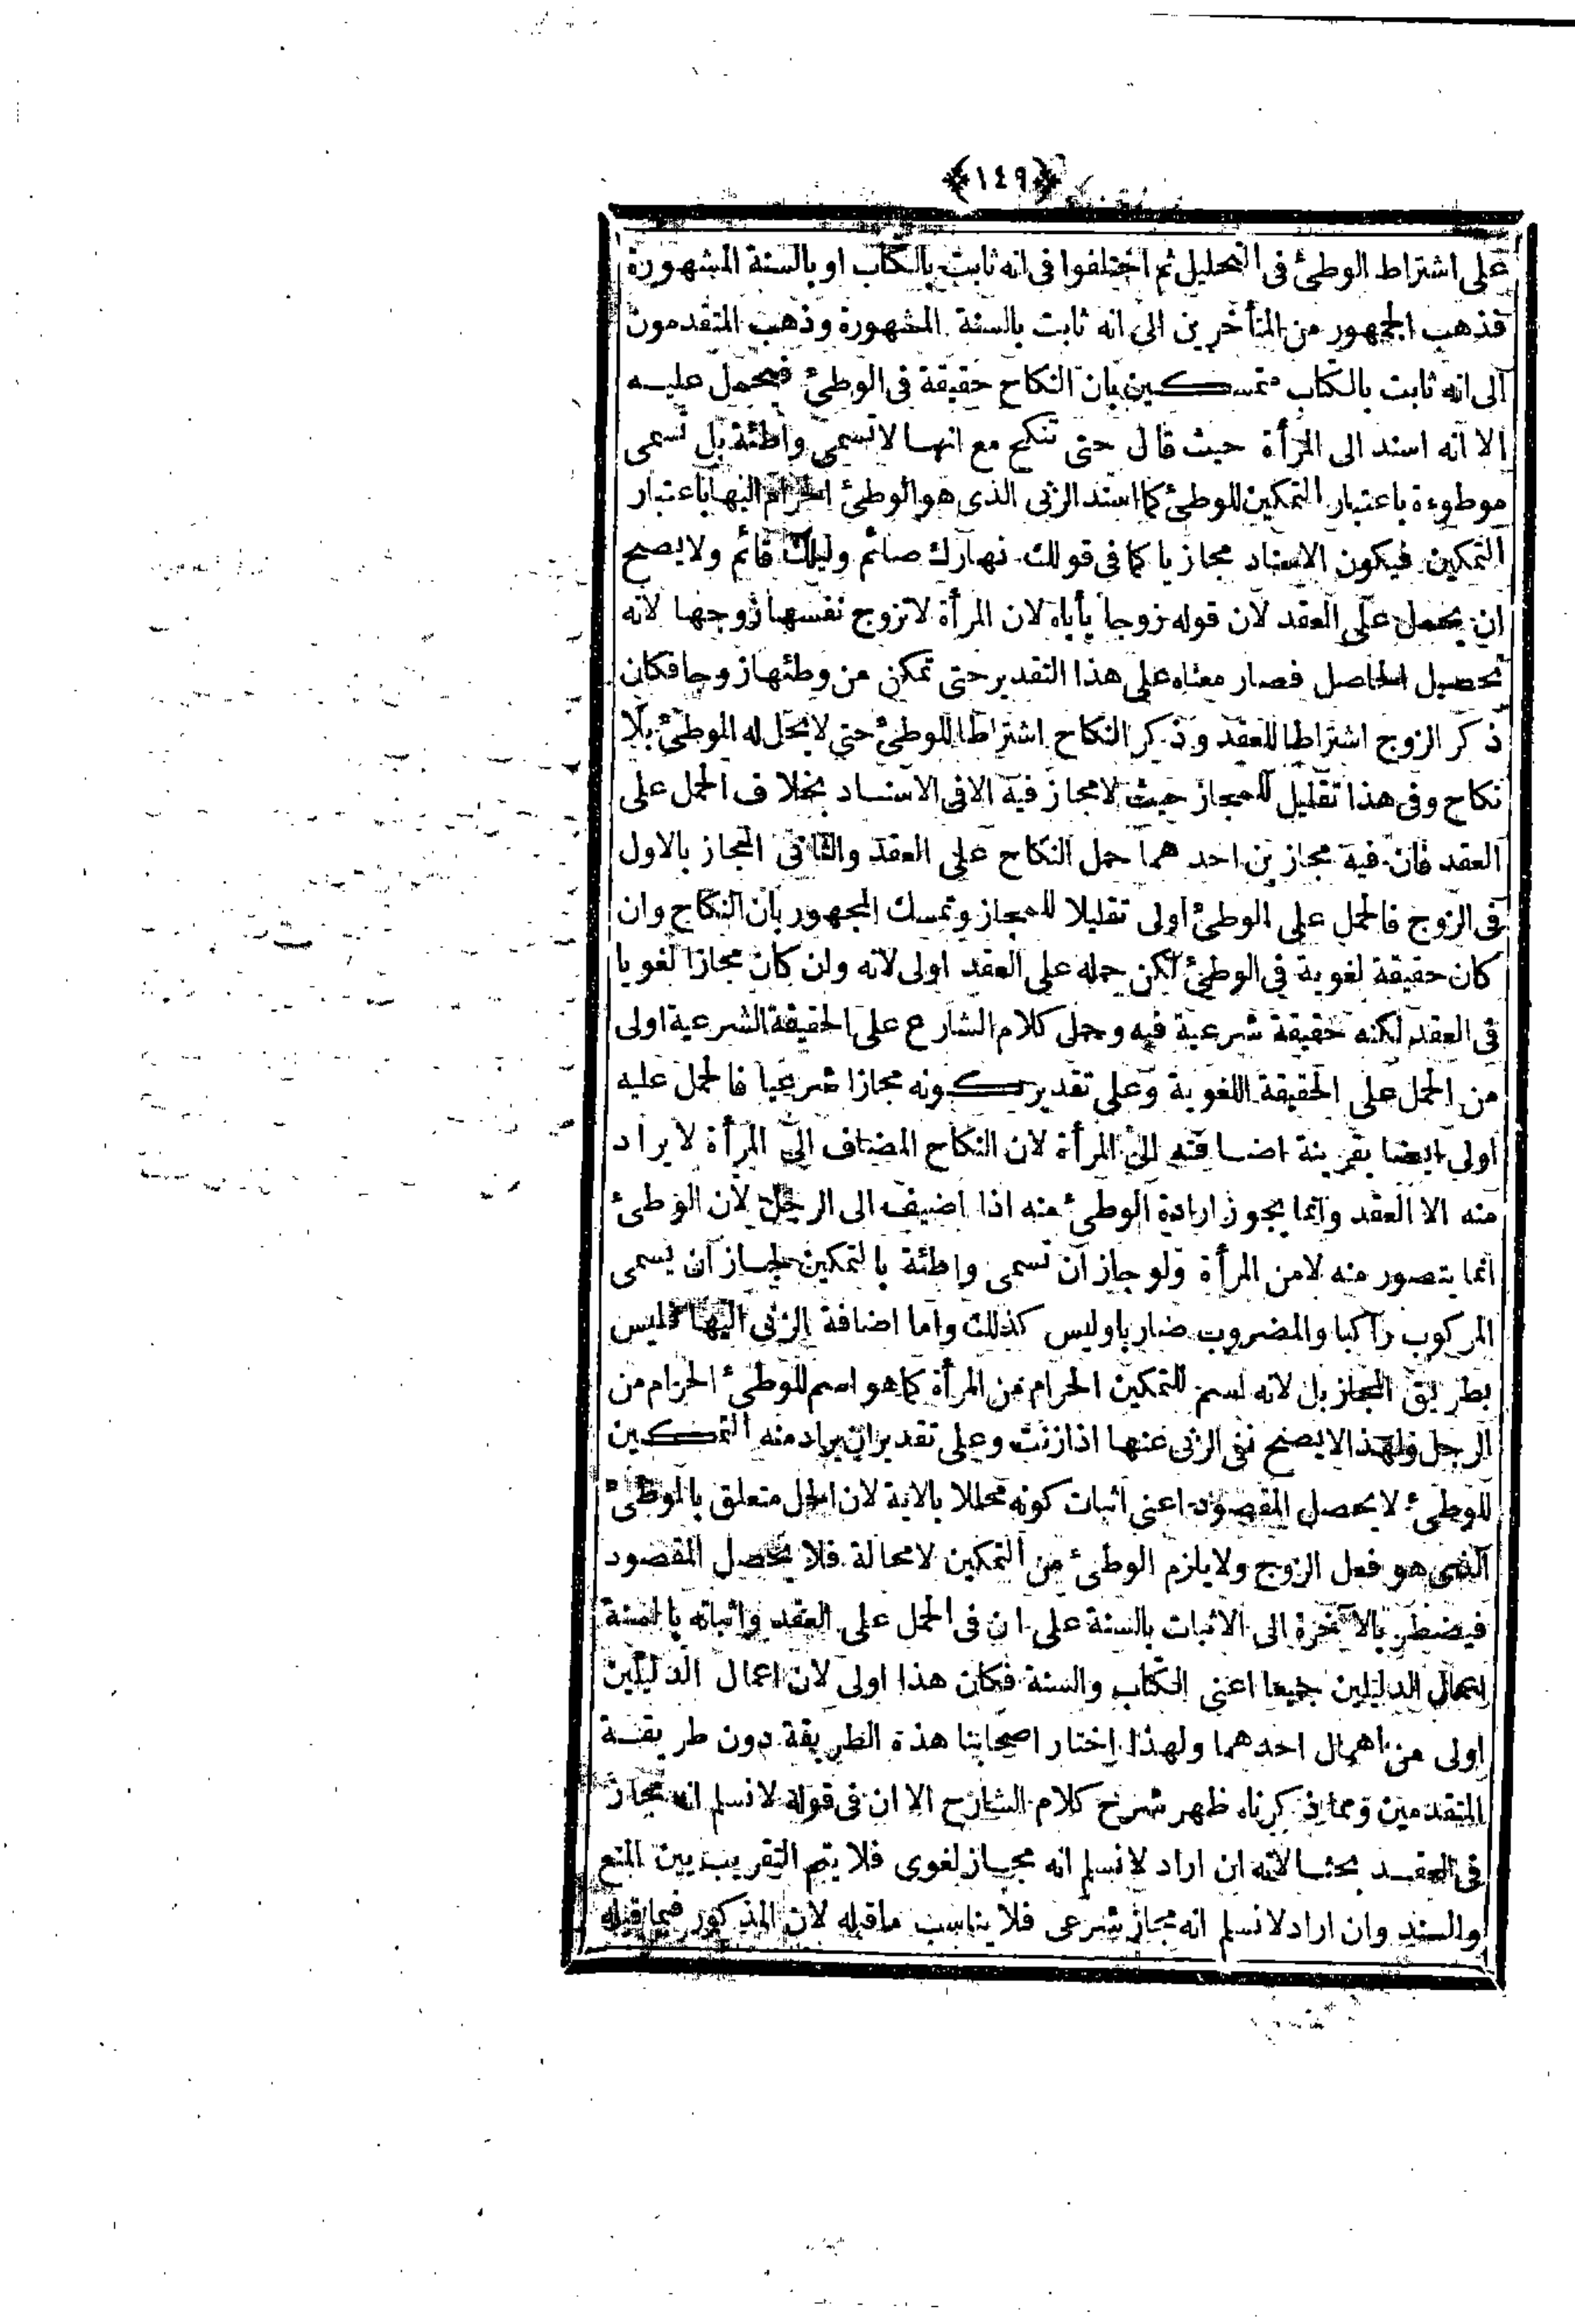 ﴿١٤٩﴾
على اشتراط الوطئ فى التحليل ثم اختلفوا فى انه ثابت بالكتاب او بالسنة المشهورة
فذهب الجمهور من المتأخرين الى انه ثابت بالسنة المشهورة وذهب المتقدمون
الى انه ثابت بالكتاب متمسكين بان النكاح حقيقة فى الوطئ فيحمل عليه
الا انه اسند الى المرأة حيث قال حتى تنكح مع انها لا تسمى واطئة بل تسمى
موطوءة باعتبار التمكين للوطئ كما اسند الزنى الذى هو الوطئ الحرام اليها باعتبار
التمكين فيكون الاسناد مجازيا كما فى قولك نهارك صائم وليلك قائم ولا يصح
ان يحمل على العقد لان قوله زوجا يأباه لان المرأة لا تزوج نفسها زوجها لانه
تحصيل الحاصل فصار معناه على هذا التقدير حتى تمكن من وطئها زوجا فكان
ذكر الزوج اشتراطا للعقد وذكر النكاح اشتراطا للوطئ حتى لا يحل له الوطئ بلا
نكاح وفى هذا تقليل للمجاز حيث لا مجاز فيه الا فى الاسناد بخلاف الحمل على
العقد فان فيه مجازين احدهما حمل النكاح على العقد والثانى المجاز بالاول
فى الزوج فالحمل على الوطئ اولى تقليلا للمجاز وتمسك الجمهور بان النكاح وان
كان حقيقة لغوية فى الوطئ لكن حمله على العقد اولى لانه وان كان مجازا لغويا
فى العقد لكنه حقيقة شرعية فيه وحمل كلام الشارع على الحقيقة الشرعية اولى
من الحمل على الحقيقة اللغوية وعلى تقدير كونه مجازا شرعيا فالحمل عليه
اولى ايضا بقرينة اضافته الى المرأة لان النكاح المضاف الى المرأة لا يراد
منه الا العقد وانما يجوز ارادة الوطئ منه اذا اضيف الى الرجل لان الوطئ
انما يتصور منه لا من المرأة ولو جاز ان تسمى واطئة بالتمكين لجاز ان يسمى
المركوب راكبا والمضروب ضاربا وليس كذلك واما اضافة الزنى اليها فليس
بطريق المجاز بل لانه اسم للتمكين الحرام من المرأة كما هو اسم للوطئ الحرام من
الرجل ولهذا لا يصح نفى الزنى عنها اذا زنت وعلى تقدير ان يراد منه التمكين
للوطئ لا يحصل المقصود اعنى اثبات كونه محللا بالاية لان الحل متعلق بالوطئ
الذى هو فعل الزوج ولا يلزم الوطئ من التمكين لا محالة فلا يحصل المقصود
فيضطر بالآخرة الى الاثبات بالسنة على ان فى الحمل على العقد واثباته بالسنة
اعمال الدليلين جميعا اعنى الكتاب والسنة فكان هذا اولى لان اعمال الدليلين
اولى من اهمال احدهما ولهذا اختار اصحابنا هذه الطريقة دون طريقة
المتقدمين ومما ذكرناه ظهر شرح كلام الشارح الا ان فى قوله لا نسلم انه مجاز
فى العقد بحثا لانه ان اراد لا نسلم انه مجاز لغوى فلا يتم التقريب بين المنع
والسند وان اراد لا نسلم انه مجاز شرعى فلا يناسب ماقبله لان المذكور فيما قبله